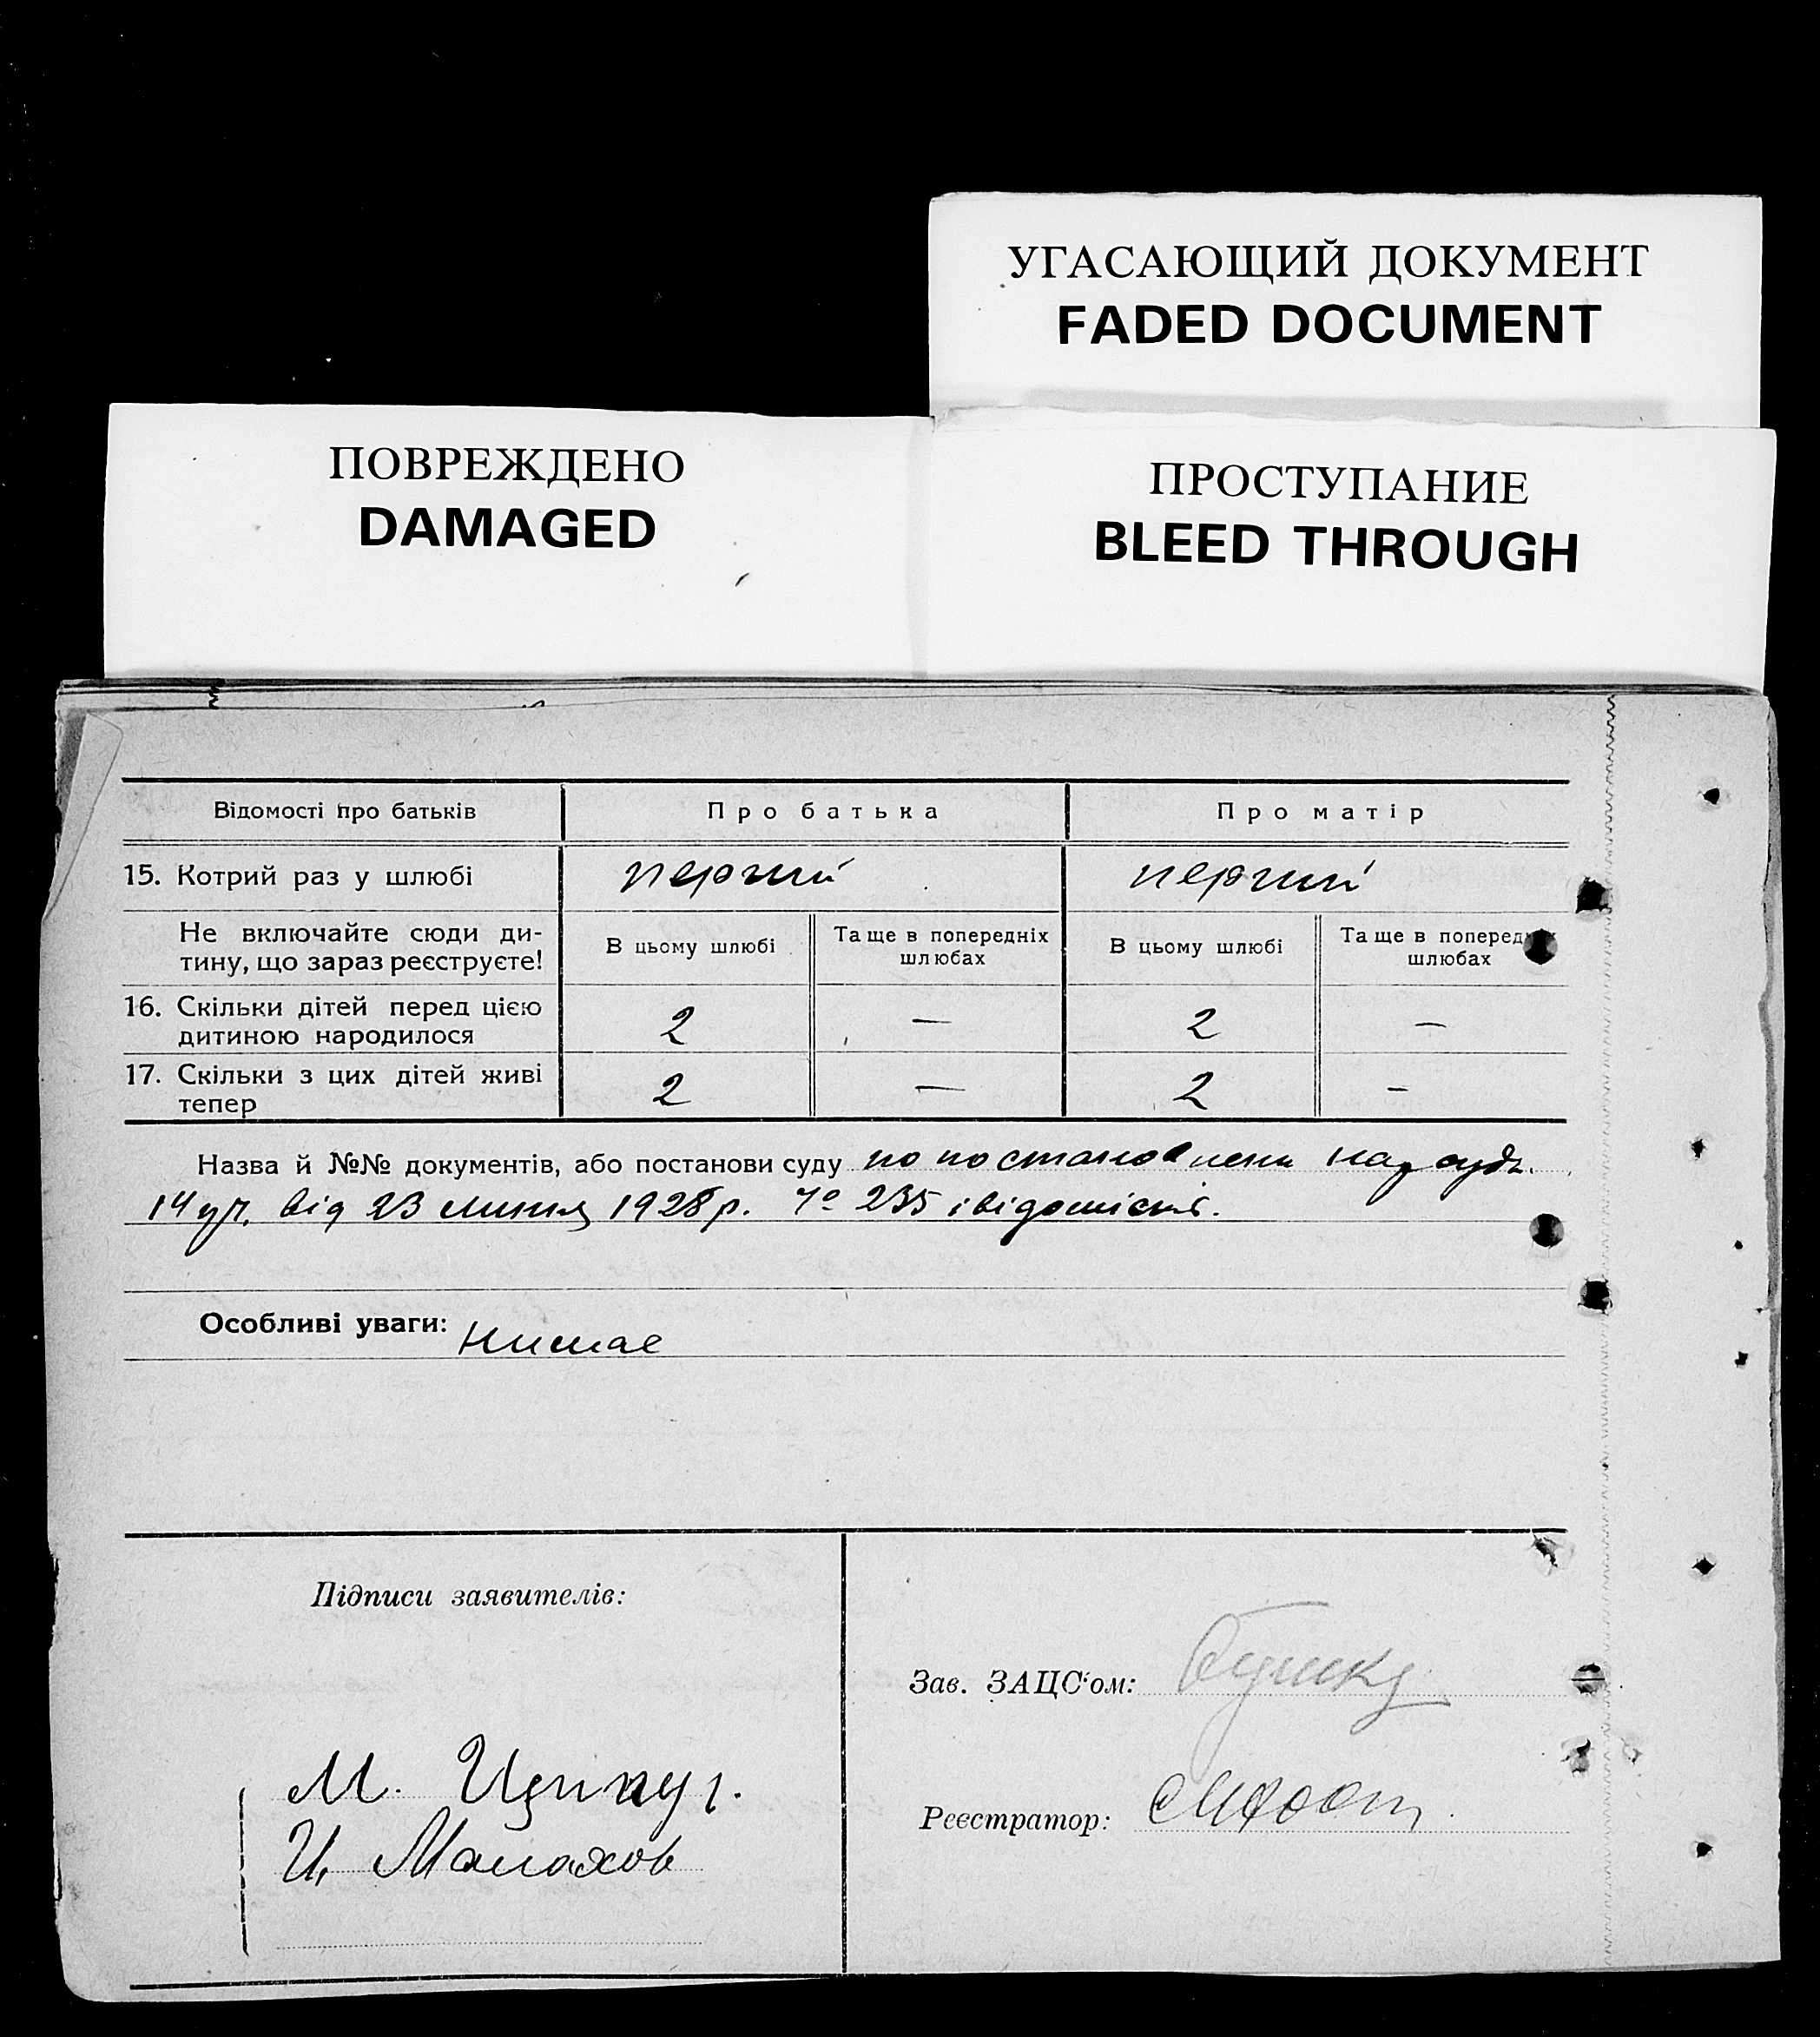 УГАСАЮЩИЙ ДОКУМЕНТ
FADED DOCUMENT
ПОВРЕЖДЕНО
DAMAGED
ПРОСТУПАНИЕ
BLEED THROUGH
Відомості про батьків Про батька Про матір
15. Котрий раз у шлюбі перший перший
Не включайте сюди ди-
тину, що зараз реєструєте!
В цьому шлюбі
Та ще в попередніх
шлюбах
В цьому шлюбі
Та ще в попередніх
шлюбах
16. Скільки дітей перед цією
дитиною народилося
2 — 2 —
17. Скільки з цих дітей живі
тепер
2 — 2 —
Назва й №№ документів, або постанови суду по постановлени нарсуда
14 уч. від 23 липня 1928 р. № 235 і відомістя.
Особливі уваги: Нимає
Підписи заявителів:
Зав. ЗАЦС'ом:
М.
И. Малахов
Реєстратор: